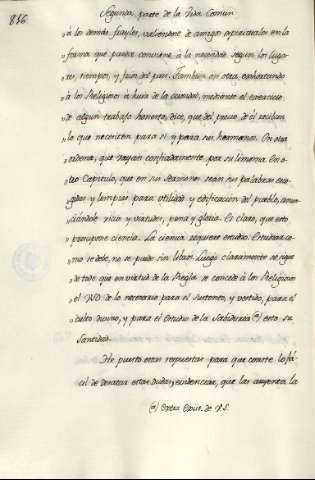 816
Segunda parte de la Vida Comun
" à los demás frayles, valiendose de amigos apiecarlos en la
" forma que puede conviene à la necesidad segun los luga-
" res, tiempos, y frios del pais. Tambien en otra exhortando
" à los Religiosos à huir de la ociosidad, mediante el exercicio
" de algun trabajo honesto, dice, que del precio de el reciban
" lo que necesiten para si y para sus hermanos. En otra
" ordena, que vayan confiadamente por su limosna. En o-
" tro Capitulo, que en sus sermones sean sus palabras exa-
" minadas y limpias para utilidad y edificacion del pueblo, anun-
" ciandole vicios y virtudes, pena y gloria. Es claro, que esto
" presupone ciencia. La ciencia requiere estudio. Estudiar co-
" mo se debe, no se puede sin libros. Luego claramente se sigue
" de todo que en virtud de la Regla se concede à los Religiosos
" el uso de lo necesario para el sustento, y vestido, para el
" culto divino, y para el Estudio de la Sabiduria (a) esto su
Santidad.
He puesto estas respuestas para que conste lo fá-
cil de desatar estas dudas, y evidenciar, que las aumenta la
(a)